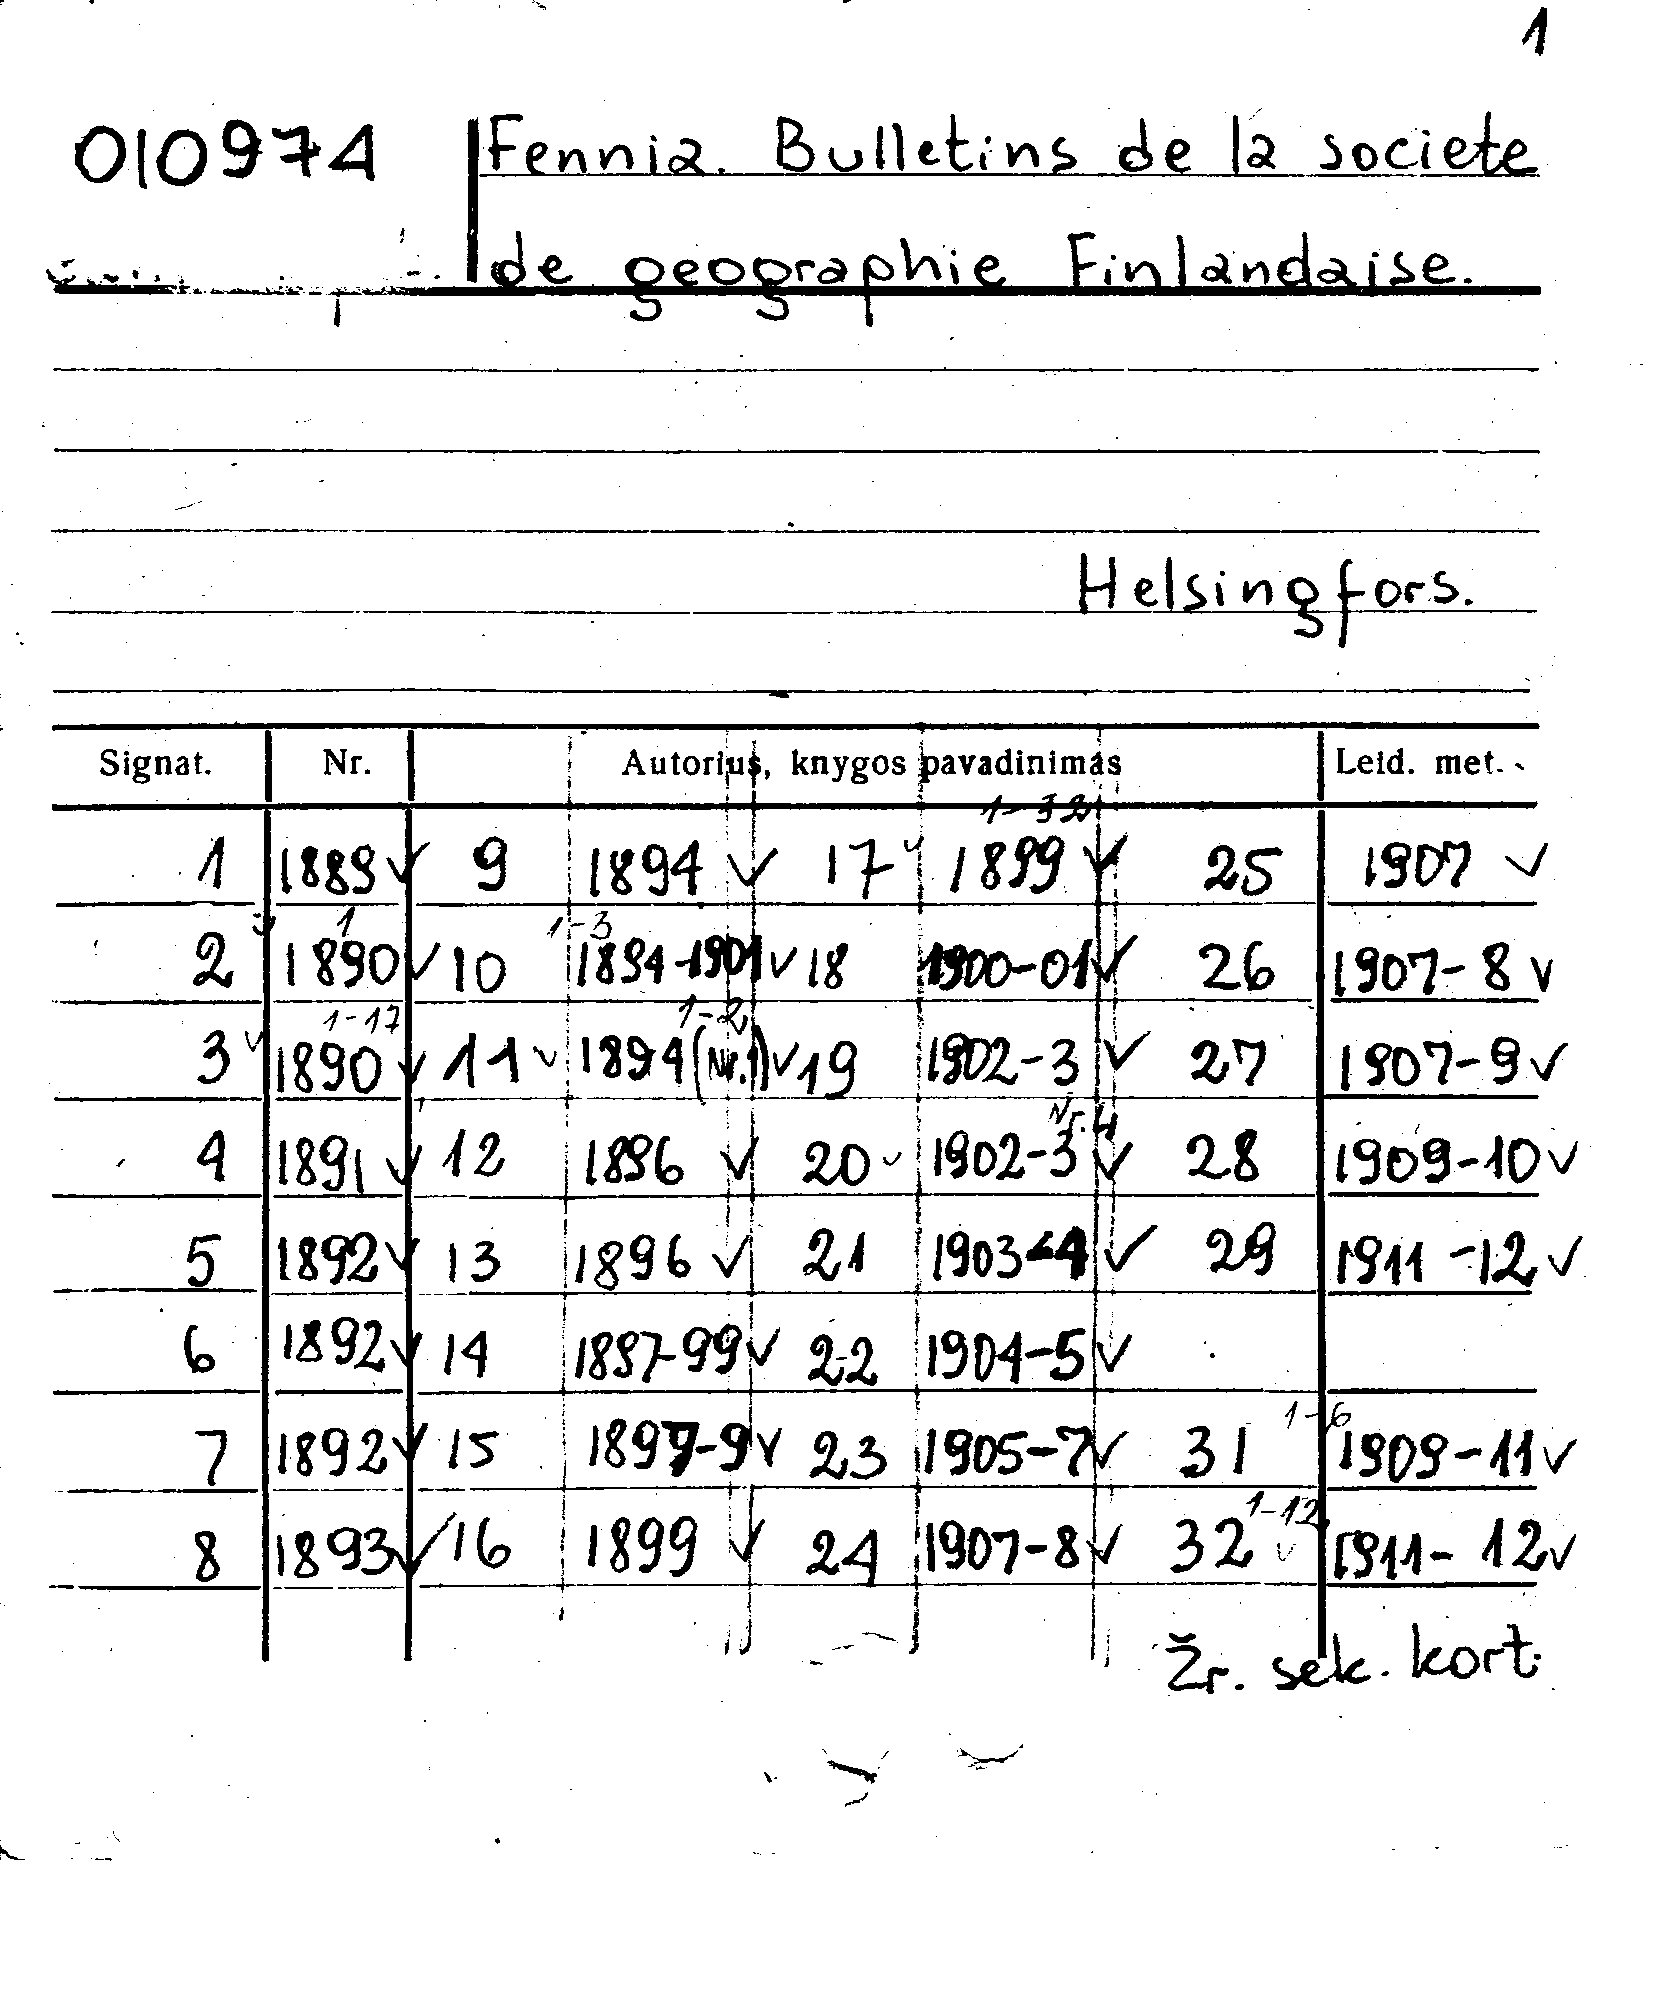 1
010974 Fennia. Bulletins de la societe
de geographie Finlandaise.
Helsingfors.
Signat. Nr. Autorius, knygos pavadinimas Leid. met.
1-32
1 1889 ✓ 9 1894 ✓ 17 ✓ 1899 ✓ 25 1907 ✓
1 1-3
2 1890 ✓ 10 1894-1901 ✓ 18 1900-01 ✓ 26 1907-8 ✓
1-17 1-2
3 ✓ 1890 ✓ 11 ✓ 1894 (Nr.1) ✓ 19 1902-3 ✓ 27 1907-9 ✓
Nr. 4
4 1891 ✓ 12 1896 ✓ 20 ✓ 1902-3 ✓ 28 1909-10 ✓
5 1892 ✓ 13 1896 ✓ 21 1903-4 ✓ 29 1911-12 ✓
6 1892 ✓ 14 1897-99 ✓ 22 1904-5 ✓
1-6
7 1892 ✓ 15 1897-9 ✓ 23 1905-7 ✓ 31 1909-11 ✓
1-12
8 1893 ✓ 16 1899 ✓ 24 1907-8 ✓ 32 ✓ 1911-12 ✓
Žr. sek. kort.